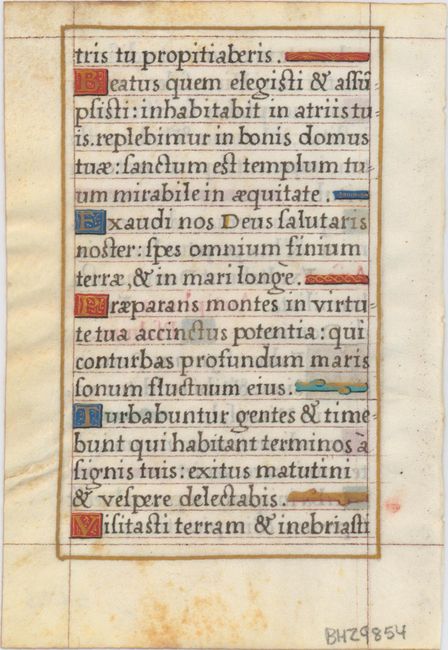 tris tu propitiaberis.
Beatus quem elegisti & assũ
psisti: inhabitabit in atriis tu⸗
is. replebimur in bonis domus
tuæ: sanctum est templum tu⸗
um mirabile in æquitate.
Exaudi nos Deus salutaris
noster: spes omnium finium
terræ, & in mari longe.
Præparans montes in virtu⸗
te tua accinctus potentia: qui
conturbas profundum maris
sonum fluctuum eius.
Turbabuntur gentes & time⸗
bunt qui habitant terminos a
signis tuis: exitus matutini
& vespere delectabis.
Visitasti terram & inebriasti
BHZ9854